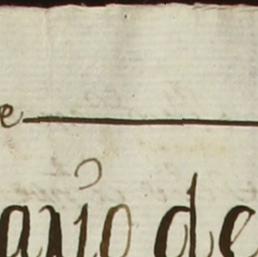 e
año de